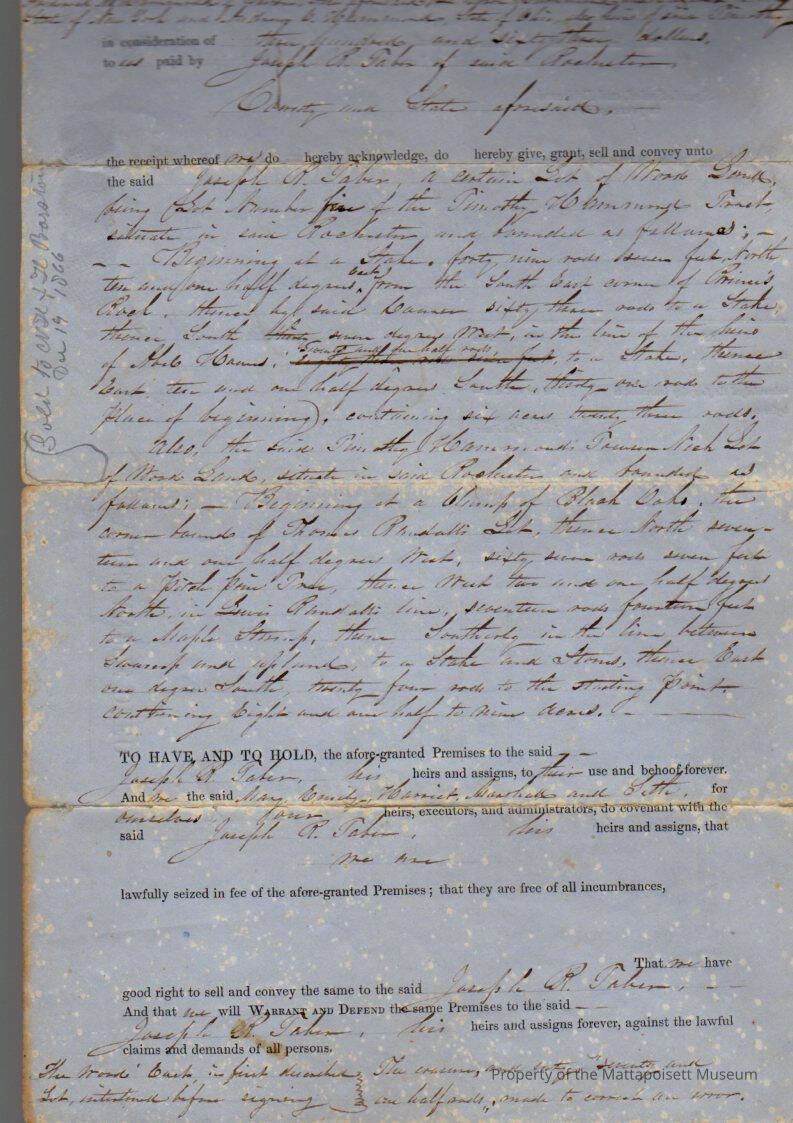 in consideration of three hundred and sixty three dollars,
to us paid by Joseph R. Taber of said Rochester,
County and State aforesaid.
the receipt whereof we do hereby acknowledge, do hereby give, grant, sell and convey unto
the said Joseph R. Taber, a certain Lot of Wood Land,
being Lot Number five of the Timothy Hammond Tract
situate in said Rochester and bounded as follows; -
Beginning at a Stake, forty nine rods seven feet North
ten and one half degrees East from the South East corner of
Rock, thence by said sixty three rods to a Stake,
thence South seven degrees West, in the line of the
of Abel, Twenty and one half rods, to a Stake, thence
East ten and one half degrees South, thirty one rods to the
place of beginning), containing six acres twenty three rods.
Also, the said Timothy Hammond's Neck Lot
of Wood Land, situate in said Rochester and bounded as
follows; - Beginning at a Clump of Black Oaks, the
corner bounds of Thomas Randall's Lot, thence North seven-
teen and one half degrees West, sixty seven rods seven feet
to a Pitch pine Tree, thence West two and one half degrees
North, in Lewis Randall's line, seventeen rods fourteen feet
to a Maple Stump, thence Southerly in the line between
Swamp and upland, to a Stake and Stones, thence East
one degree South, twenty four rods to the starting Point
containing Eight and one half to nine Acres. -
TO HAVE AND TO HOLD, the afore-granted Premises to the said
Joseph R. Taber, his heirs and assigns, to their use and behoof forever.
And we the said Mary, Emily, Harriet, and Seth, for
ourselves, our heirs, executors, and administrators, do covenant with the
said Joseph R. Taber, his heirs and assigns, that
we are
lawfully seized in fee of the afore-granted Premises; that they are free of all incumbrances,
That we have
good right to sell and convey the same to the said Joseph R. Taber,
And that we will WARRANT AND DEFEND the same Premises to the said
Joseph R. Taber, his heirs and assigns forever, against the lawful
claims and demands of all persons.
The word 'East' in first described
Lot, interlined before signing
The "Twenty and
one half rods", made to correct an error.
Sold to Barstow
Dec 19 1866
Property of the Mattapoisett Museum